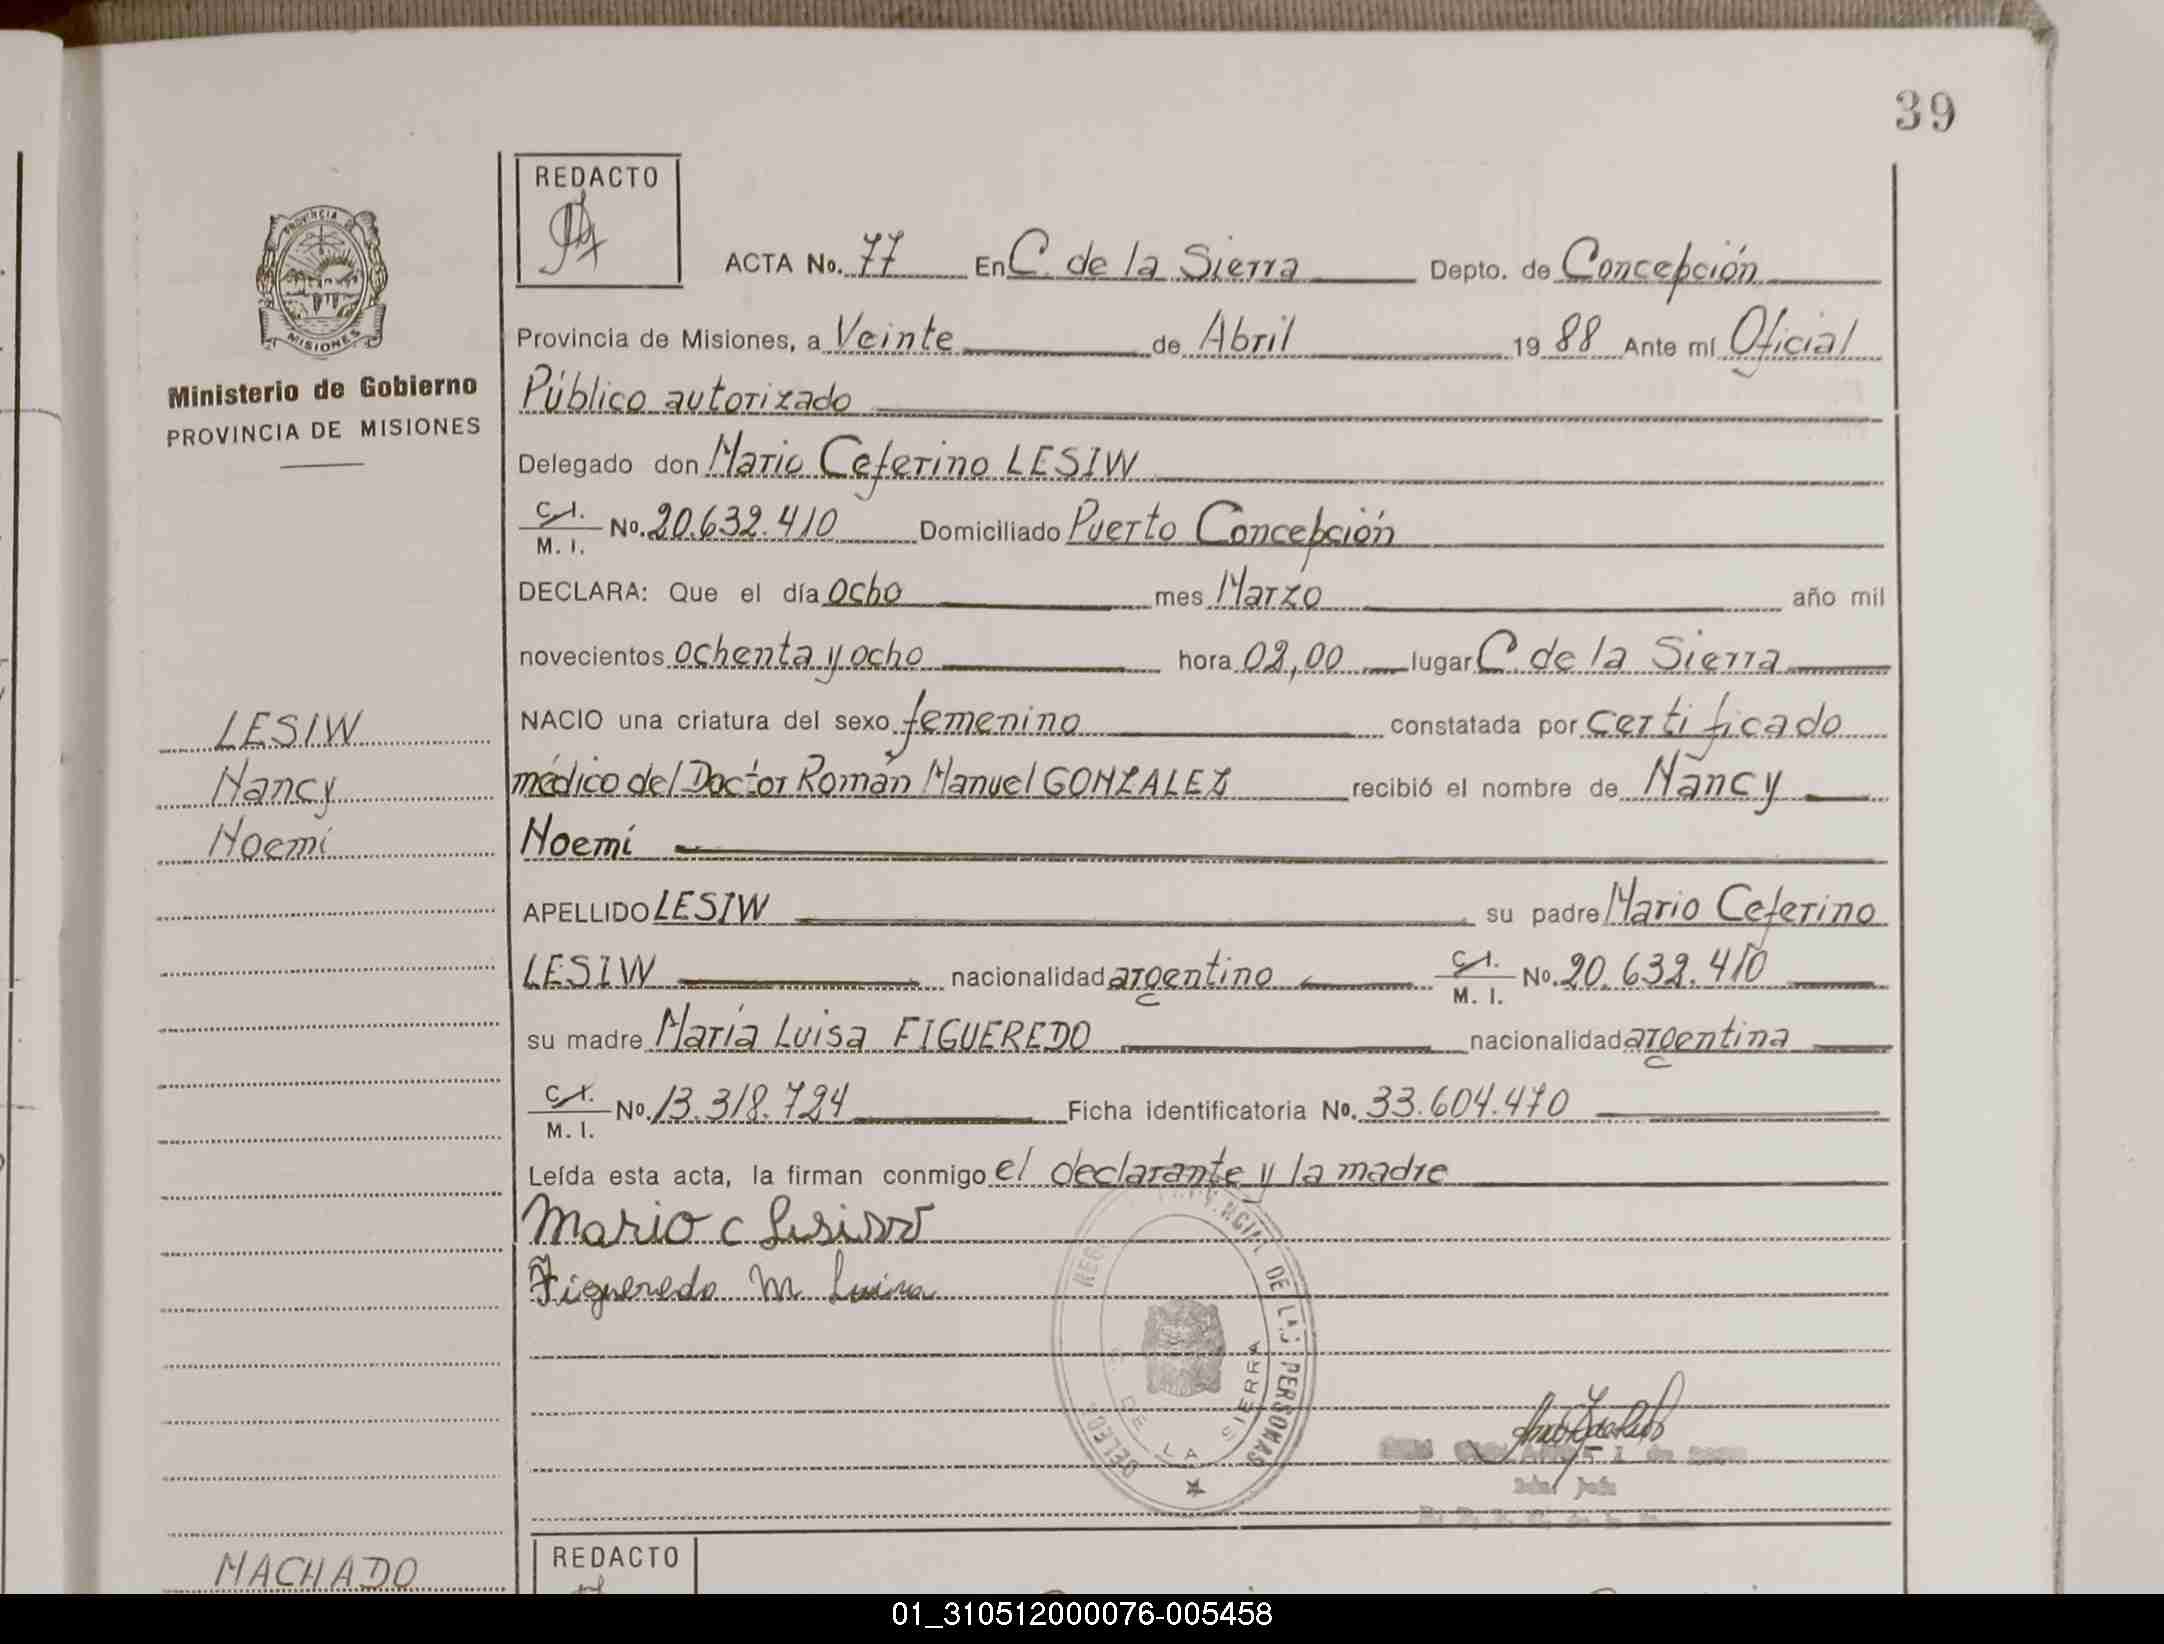 39
REDACTO
PROVINCIA DE
MISIONES
Ministerio de Gobierno
PROVINCIA DE MISIONES
ACTA No. 77 En C. de la Sierra Depto. de Concepción
Provincia de Misiones, a Veinte de Abril 19 88 Ante mí Oficial
Público autorizado
Delegado don Mario Ceferino LESIW
C. I. / M. I. No. 20.632.410 Domiciliado Puerto Concepción
DECLARA: Que el día ocho mes Marzo año mil
novecientos ochenta y ocho hora 02,00 lugar C. de la Sierra
NACIO una criatura del sexo femenino constatada por certificado
médico del Doctor Román Manuel GONZALEZ recibió el nombre de Nancy
Noemí
APELLIDO LESIW su padre Mario Ceferino
LESIW nacionalidad argentino C. I. / M. I. No. 20.632.410
su madre María Luisa FIGUEREDO nacionalidad argentina
C. I. / M. I. No. 13.318.724 Ficha identificatoria No. 33.604.470
Leída esta acta, la firman conmigo el declarante y la madre
Mario C Lesiw
Figueredo M Luisa
LESIW
Nancy
Noemí
DE LAS PERSONAS
DELEG.
DE LA SIERRA
MACHADO
REDACTO
01_310512000076-005458